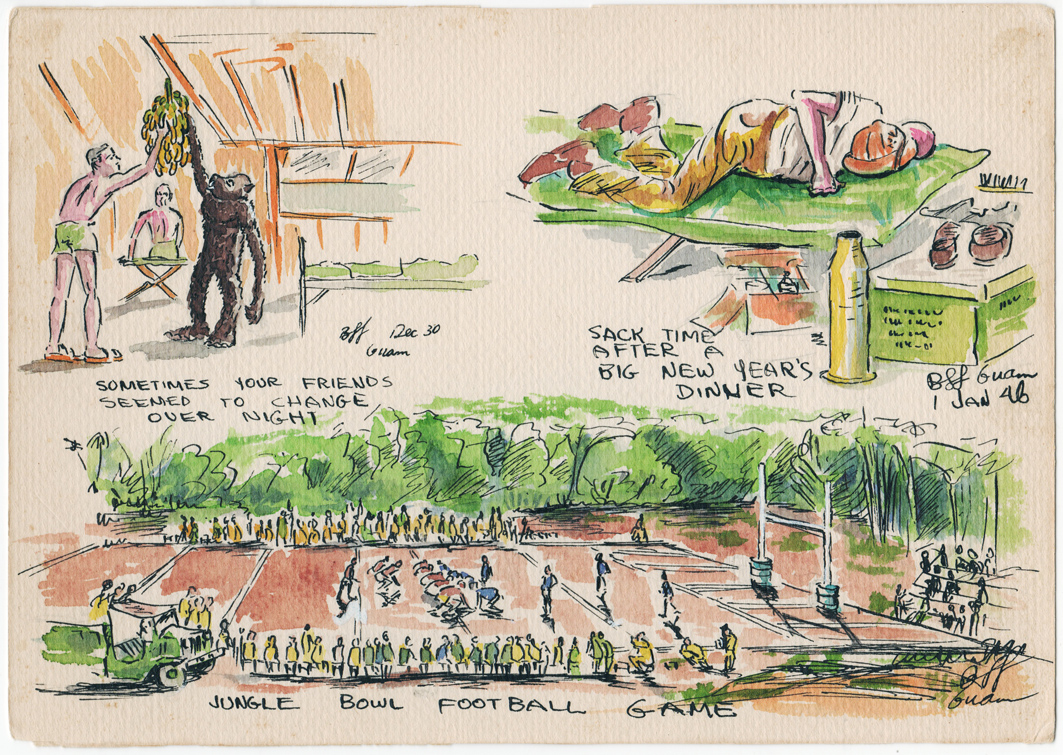 Bff Dec 30
Guam
SOMETIMES YOUR FRIENDS
SEEMED TO CHANGE
OVER NIGHT
SACK TIME
AFTER A
BIG NEW YEAR'S
DINNER
Bff Guam
1 JAN 46
JUNGLE BOWL FOOTBALL GAME
Bff
Guam